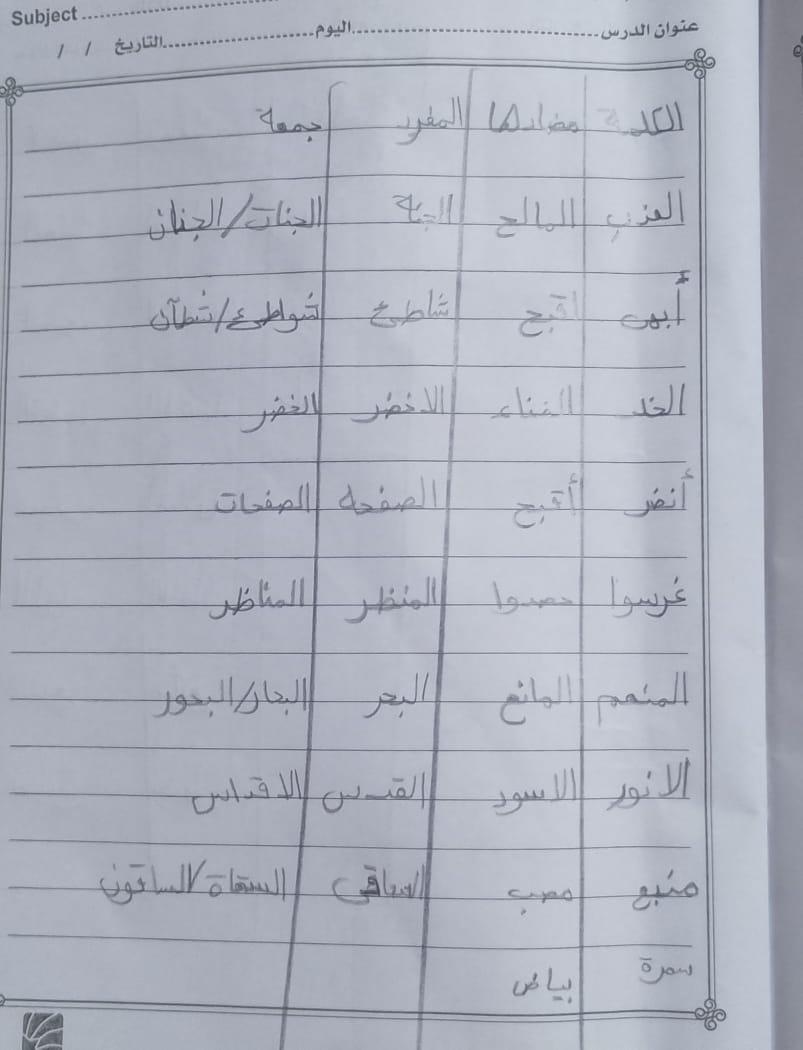 Subject
عنوان الدرس اليوم التاريخ / /
الكلمة مضادها المفرد جمعة
العذب المالح الجنة الجنات/الجنان
أبهى اقبح شاطئ شواطئ/شطآن
الخلد الفناء الاخضر الخضر
أنضر أقبح الصفحه الصفحات
غرسوا حصدوا المنظر المناظر
المنعم المانع البحر البحار/البحور
الانور الاسود القدس الاقداس
منبع مصب الساقي السقاة/الساقون
سمرة بياض